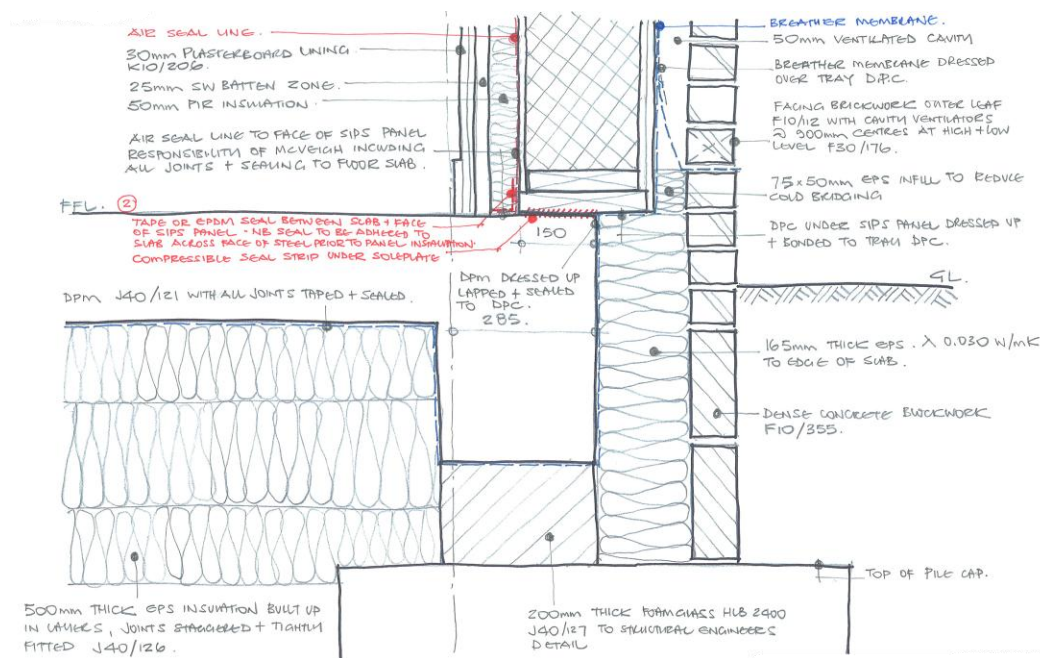 AIR SEAL LINE.
30mm PLASTERBOARD LINING
K10/206.
25mm SW BATTEN ZONE.
50mm PIR INSULATION.
AIR SEAL LINE TO FACE OF SIPS PANEL
RESPONSIBILITY OF MCVEIGH INCLUDING
ALL JOINTS + SEALING TO FLOOR SLAB.
FFL. 2
TAPE OR EPDM SEAL BETWEEN SLAB + FACE
OF SIPS PANEL - NB SEAL TO BE ADHERED TO
SLAB ACROSS FACE OF STEEL PRIOR TO PANEL INSTALLATION.
COMPRESSIBLE SEAL STRIP UNDER SOLEPLATE
150
DPM DRESSED UP
LAPPED + SEALED
TO DPC.
285.
DPM J40/121 WITH ALL JOINTS TAPED + SEALED.
500mm THICK EPS INSULATION BUILT UP
IN LAYERS, JOINTS STAGGERED + TIGHTLY
FITTED J40/126.
200mm THICK FOAMGLASS HLB 2400
J40/127 TO STRUCTURAL ENGINEERS
DETAIL
BREATHER MEMBRANE.
50mm VENTILATED CAVITY
BREATHER MEMBRANE DRESSED
OVER TRAY D.P.C.
FACING BRICKWORK OUTER LEAF
F10/12 WITH CAVITY VENTILATORS
@ 900mm CENTRES AT HIGH + LOW
LEVEL F30/176.
X
75x50mm EPS INFILL TO REDUCE
COLD BRIDGING
DPC UNDER SIPS PANEL DRESSED UP
+ BONDED TO TRAY DPC.
GL.
165mm THICK EPS. λ 0.030 W/mK
TO EDGE OF SLAB.
DENSE CONCRETE BLOCKWORK
F10/355.
TOP OF PILE CAP.